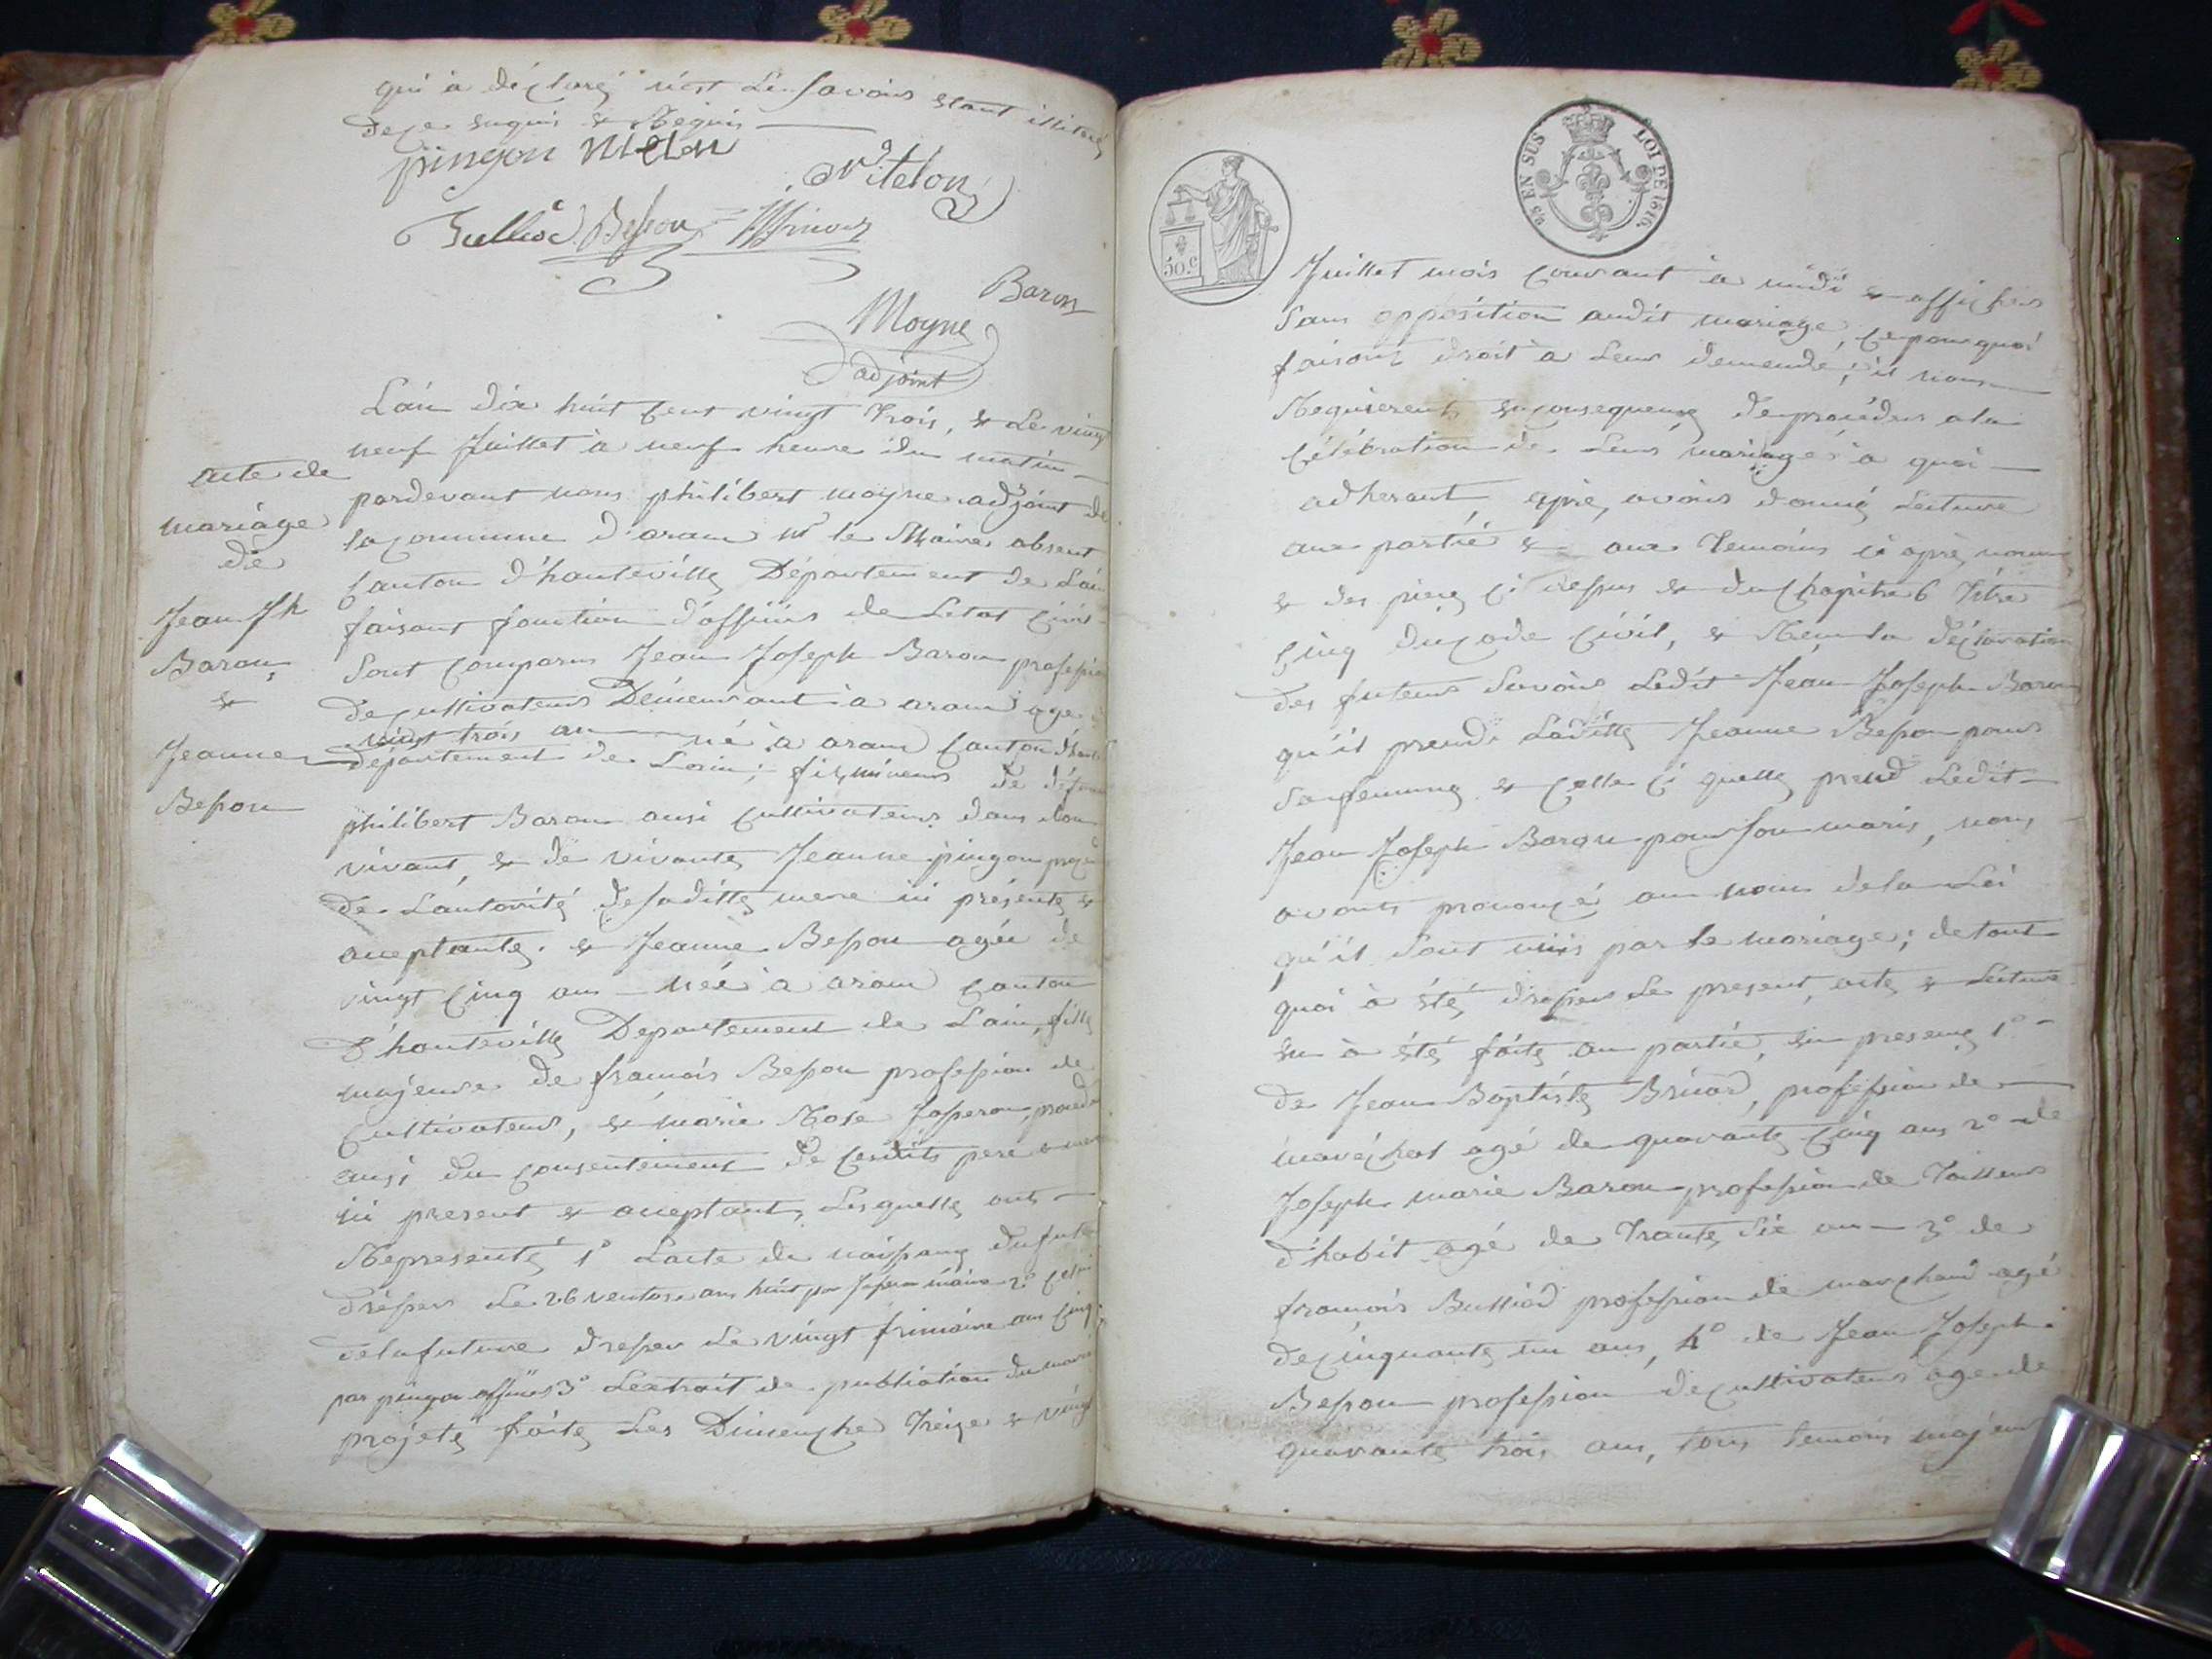 qui a déclaré n'est le savoir étant illiteré
de ce enquis & Requis
pingon melon
Vitelon
Bulliod Besson
Baron
Moyne
adjoint
acte de
mariage
de
Jean Jh
Baron,
&
Jeanne
Besson
L'an dix huit cent vingt trois, & Le vingt
neuf Juillet à neuf heure du matin
pardevant nous philibert moyne adjoint de
la commune d'aranc mr le Maire absent
Canton d'hauteville Département de L'ain
faisant fonction d'officier de L'etat Civil
Sont Comparus Jean Joseph Baron profession
de cultivateur Demeurant à aranc age
vingt trois an né à aranc Canton d'haut
departement de Lain; fils mineur de défunt
philibert Baron ausi Cultivateur dans son
vivant, & de vivante Jeanne pingon
de L'autorité de saditte mere ici présente &
aceptante. & Jeanne Besson agée de
vingt Cinq ans née à aranc Canton
d'hauteville Departement de Lain, fille
majeure de francois Besson profession de
Cultivateur, & marie Rose Josseron,
ausi du Consentement de Cesdits pere & mere
ici present & aceptant, Lesquelle ont
Representé 1° L'acte de naissance du futur
dresser Le 26 ventose an huit par maire 2° Celui
de la future dresser Le vingt frimaire an Cinq
par pingon officier 3° L'extrait de publication du mariage
projeté faite Les Dimenche Treize & vingt
50.C
25 EN SUS LOI DE 1816
Juillet mois Courant à midi & affichés
Sans opposition audit mariage, Ce pourquoi
faisant droit à Leur demende; il nous
Requierent en Consequence de procéder a la
Célébration de Leur mariage à quoi
adherant, apre, avoir donné Lecture
aux partié & aux Temoins ci après nommé
& des piece Ci dessus & du Chapitre 6 Titre
Cinq du Code Civil, & Reçu la déclaration
des futeur Savoir Ledit Jean Joseph Baron
qu'il prend Laditte Jeanne Besson pour
Son femme & Celle Ci quelle prend Ledit
Jean Joseph Baron pour Son maris, nous
avons prononcé au nom de la Loi
qu'il Sont unis par le mariage; de tout
quoi à été dresser Le present, acte & Lecture
en à été faite au partié, en presence 1°
de Jean Baptiste Briod, profession de
maréchal agé de quarante Cinq ans 2° de
Joseph marie Baron profession de Tailleur
d'habit agé de Trante Six an 3° de
francois Bulliod profession de marchand agé
de Cinquante un ans, 4° de Jean Joseph
Besson profession de Cultivateur age de
quarante trois ans, tous temoins majeur